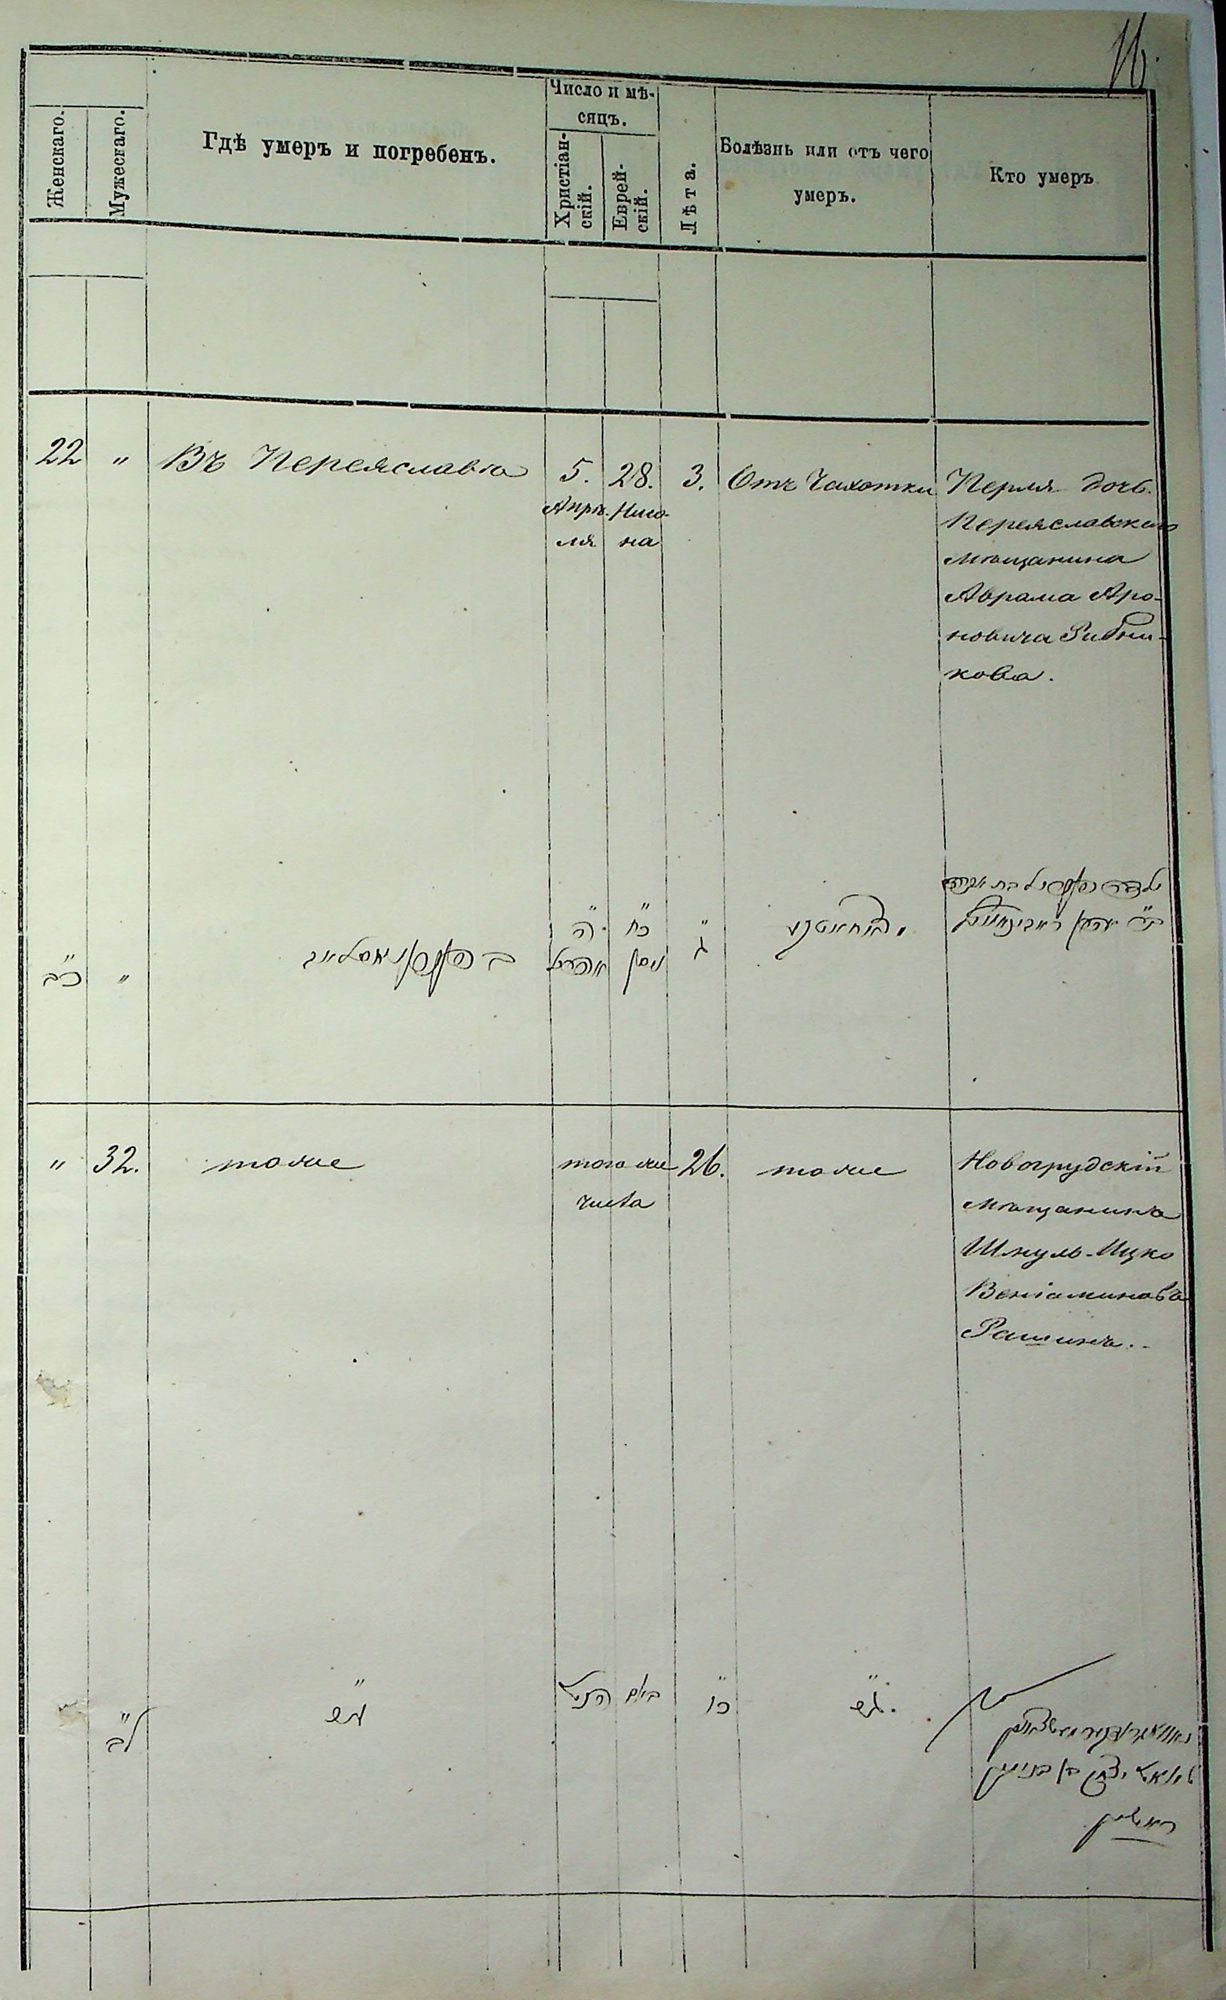 16.
Женскаго.
Мужескаго.
Гдѣ умеръ и погребенъ.
Число и мѣ-
сяцъ.
Христіан-
скій.
Еврей-
скій.
Лѣта.
Болѣзнь или отъ чего
умеръ.
Кто умеръ
22
"
Въ Переяславѣ
5.
Апрѣ-
ля
28.
Ниса-
на
3.
Отъ Чахотки
Перля дочь
Переяславскаго
мѣщанина
Аврама Аро-
новича Рибни-
кова.
כ״ב
"
ה״
אפריל
כ״ח
ניסן
ג
"
32.
тоже
того же
числа
26.
тоже
Новогрудскій
мѣщанинъ
Шмуль-Ицко
Веніаминовъ
Рашинъ.
ל״ב
כ״ו
שמואל יצחק בן בנימין
ראשין